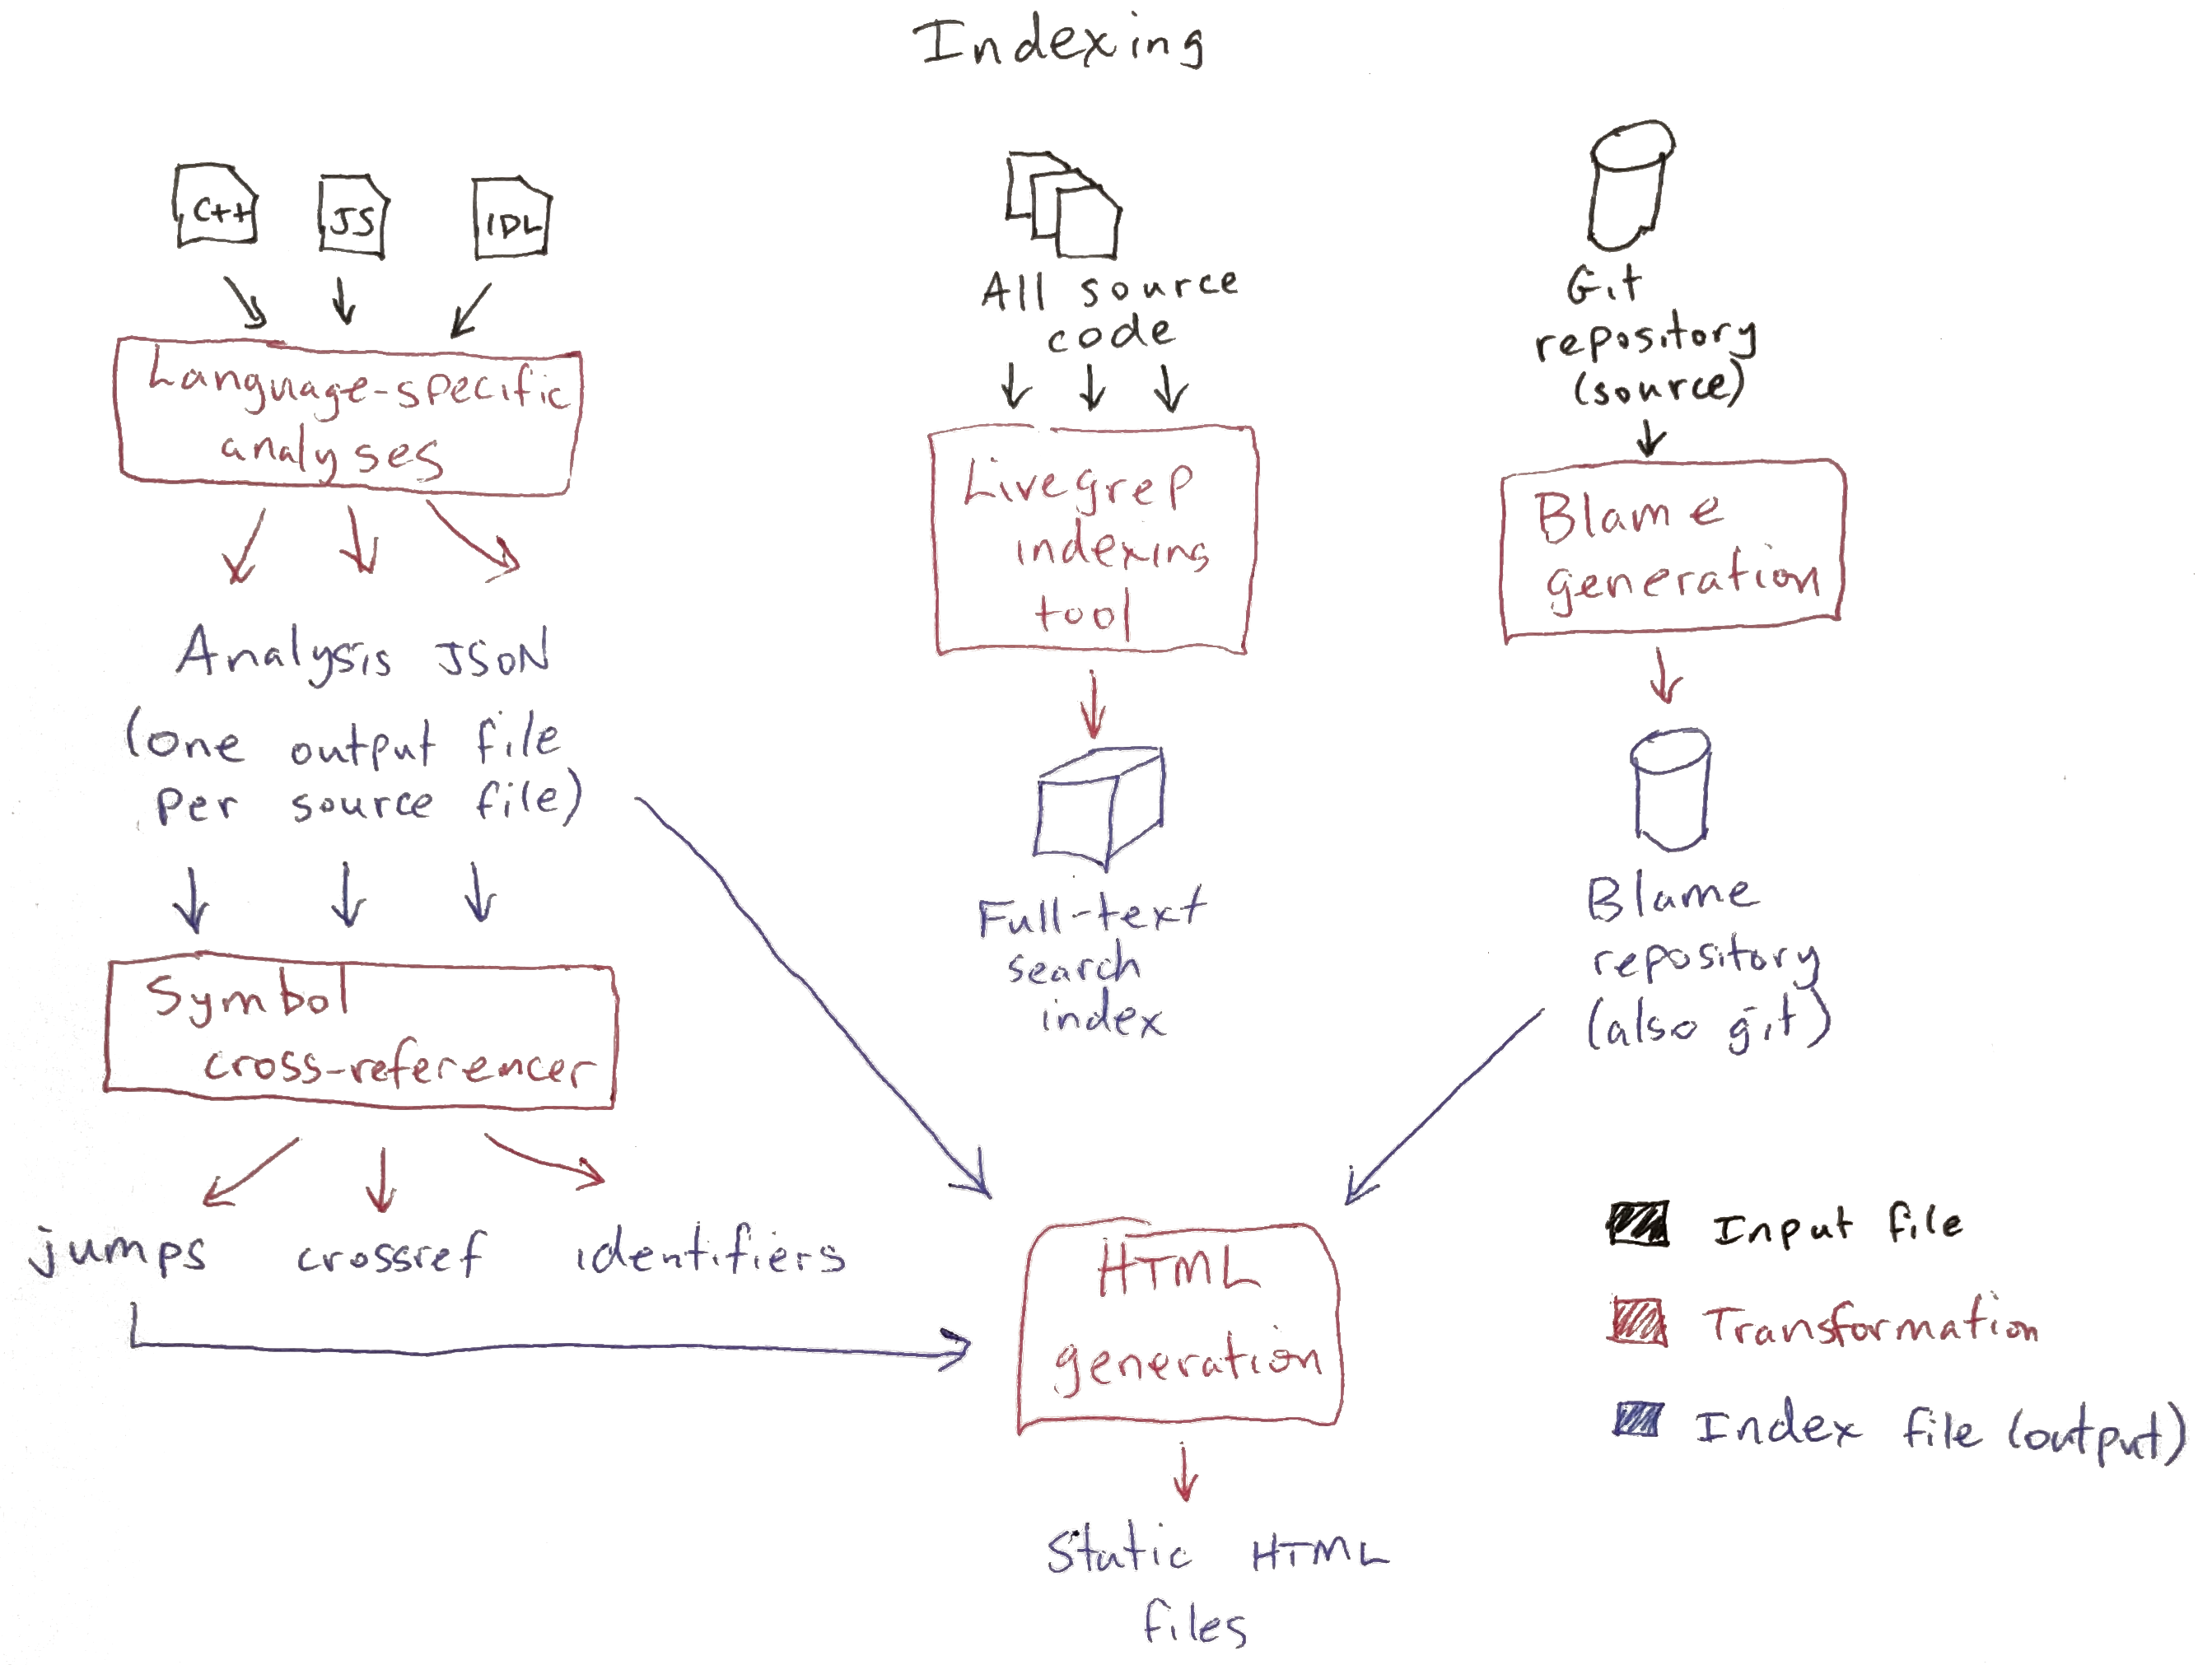 Indexing
C++
JS
IDL
Language-specific
analyses
Analysis JSON
(one output file
per source file)
Symbol
cross-referencer
jumps
crossref
identifiers
All source
code
Livegrep
indexing
tool
Full-text
search
index
Git
repository
(source)
Blame
generation
Blame
repository
(also git)
HTML
generation
Static HTML
files
Input file
Transformation
Index file (output)